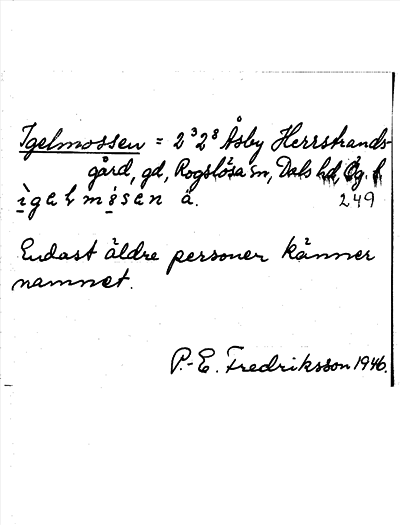 Igelmossen = 2³2⁸ Åsby Herrstrands-
gård, gd, Rogslösa sn, Dals hd, Ög. l.
ìgelmòsen a. 249
Endast äldre personer känner
namnet.
P.-E. Fredriksson 1946.